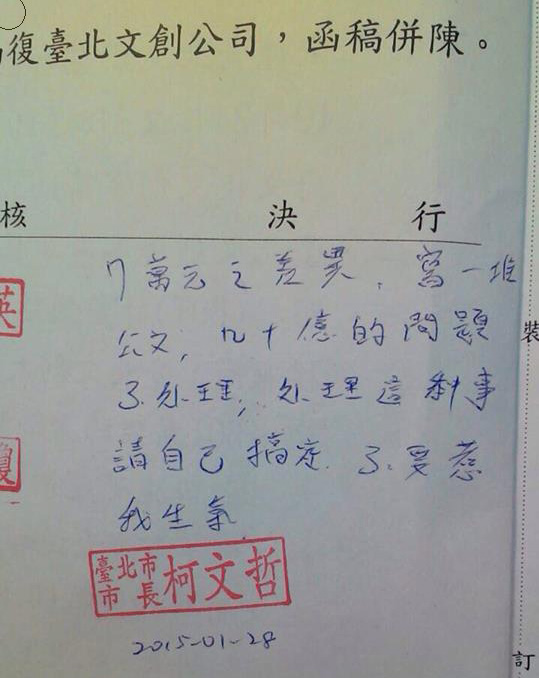 復臺北文創公司，函稿併陳。
核 決 行
7萬元之差異，寫一堆
公文，几十億的問題
不处理，处理這种事
請自己搞定．不要惹
我生氣．
英
臺北市
市長
柯文哲
2015-01-28
裝
訂